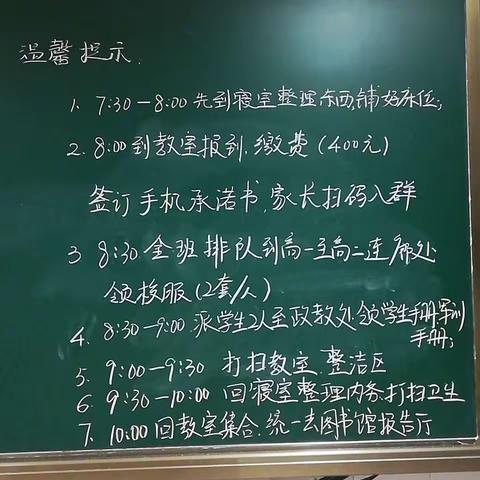 温馨提示.
1. 7:30-8:00 先到寝室整理东西,铺好床位;
2. 8:00到教室报到.缴费(400元)
签订手机承诺书,家长扫码入群
3 8:30 全班排队到高一至高二连廊处
领校服(2套/人)
4. 8:30-9:00 派学生以至政教处领学生手册.军训
手册;
5. 9:00-9:30 打扫教室.整洁区
6. 9:30-10:00 回寝室整理内务.打扫卫生
7. 10:00回教室集合.统一去图书馆报告厅